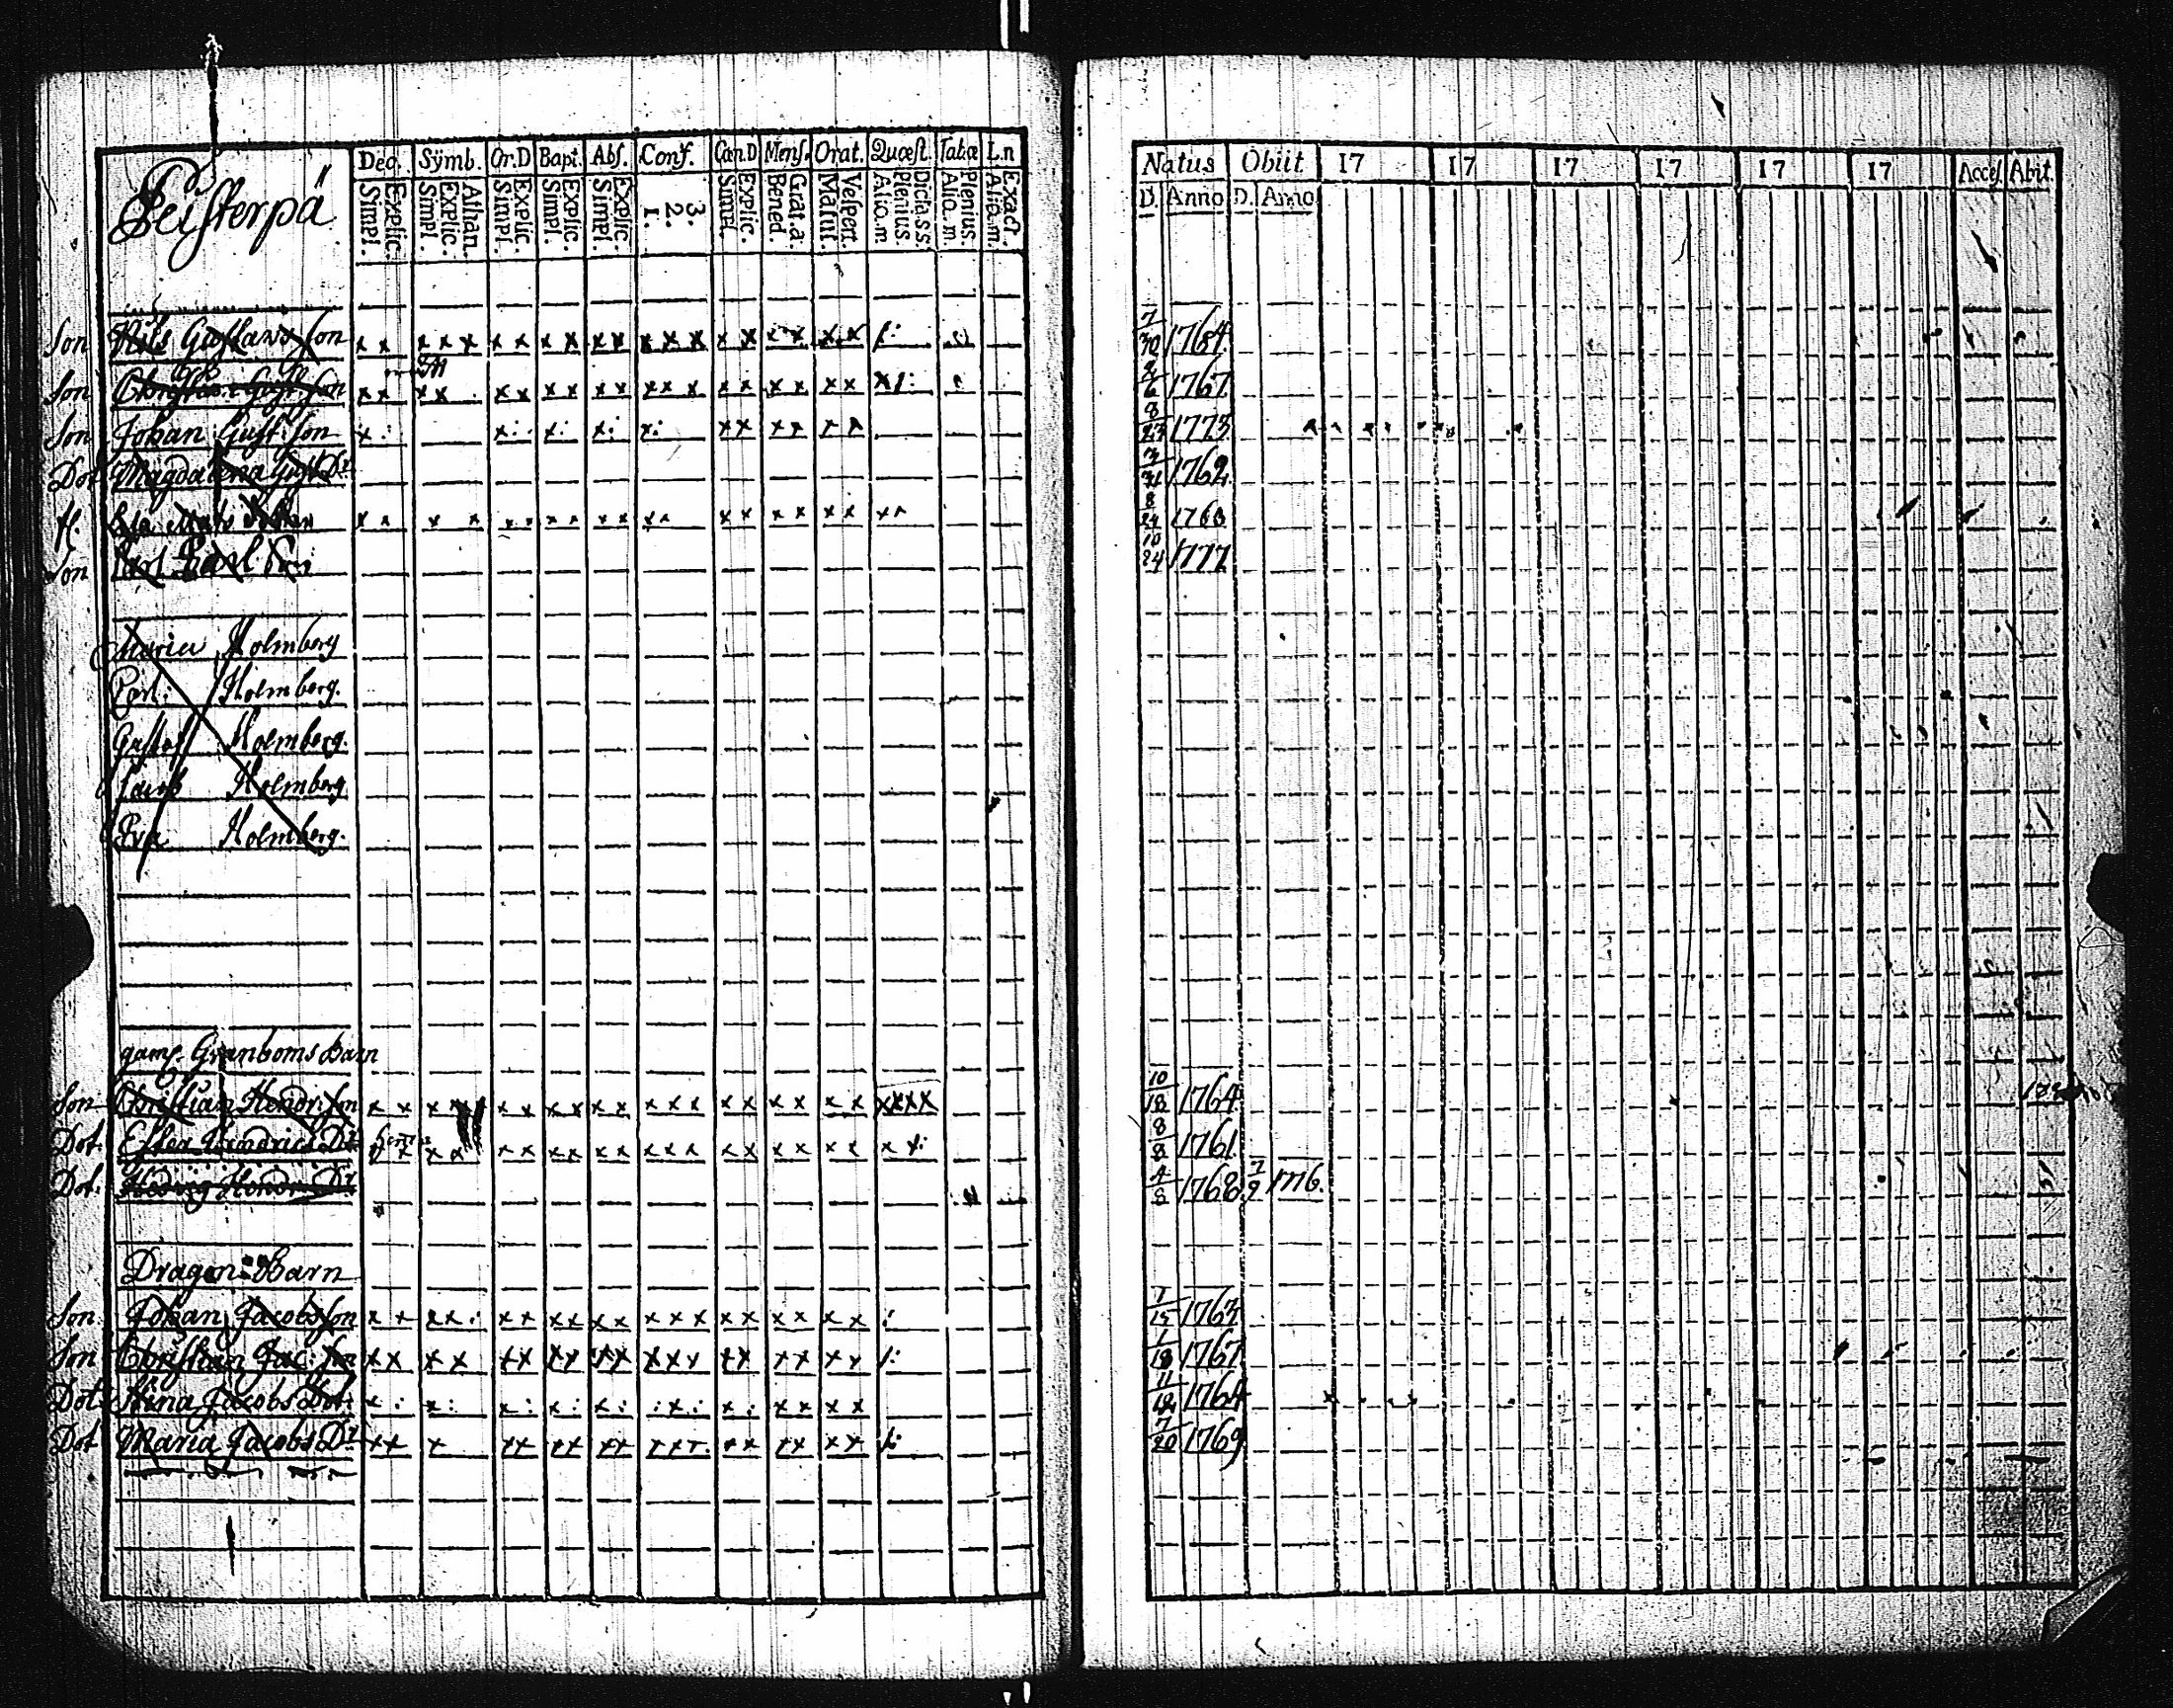 Peisterpä
Dec. Symb. Or.D Bapt. Abs. Conf. Can.D Mens. Orat. Quæst. Tabæ L.n
Simpl. Explic. Simpl. Explic. Athan. Simpl. Explic. Simpl. Explic. Simpl. Explic. 1. 2. 3. Simpl. Explic. Bened. Grat.a. Matut. Vespert. Alio.m. Plenius. Dicta.s.s. Alio.m. Plenius. Alio.m. Exact.
Natus Obiit 17 17 17 17 17 17 Acces. Abit.
D. Anno D. Anno
Son Nils Gustavs Son x x x x x x x x x x x x x x x x x x x x 7/30 1764
Son Gust. Son x x x x x x x x x x x x x x x x x x x 2/6 1767
Son Johan Gust. Son x x x x x x x x x x x 8/27 1773
Dot Magdalena Gust. Dr 1762
x x x x x x x x x x x x x x x x x x x x 8/24
Son Carl 10/24 1777
Maria Holmberg
Carl Holmberg.
Gustaf Holmberg.
Jacob Holmberg
Eva Holmberg.
gam. Granboms Barn
Son Christian Hendr. Son x x x x x x x x x x x x x x x x x x x x x x x x 10/18 1764
Dot. Hendrics Dr x x x x x x x x x x x x x x x x x x x x 8/8 1761
Dot. Hedvig Hendr. Dr 4/8 1768 7/9 1776.
Dragon Barn
Son Johan Jacobs Son x x x x x x x x x x x x x x x x x x x 1763
Son Christian Jac. Son x x x x x x x x x x x x x x x x x x x 1/18 1767
Dot Stina Jacobs Dot. x x x x x x x x x x x 11/ 1764
Dot Maria Jacobs Dr x x x x x x x x x x x x x x x x x x 7/20 1769